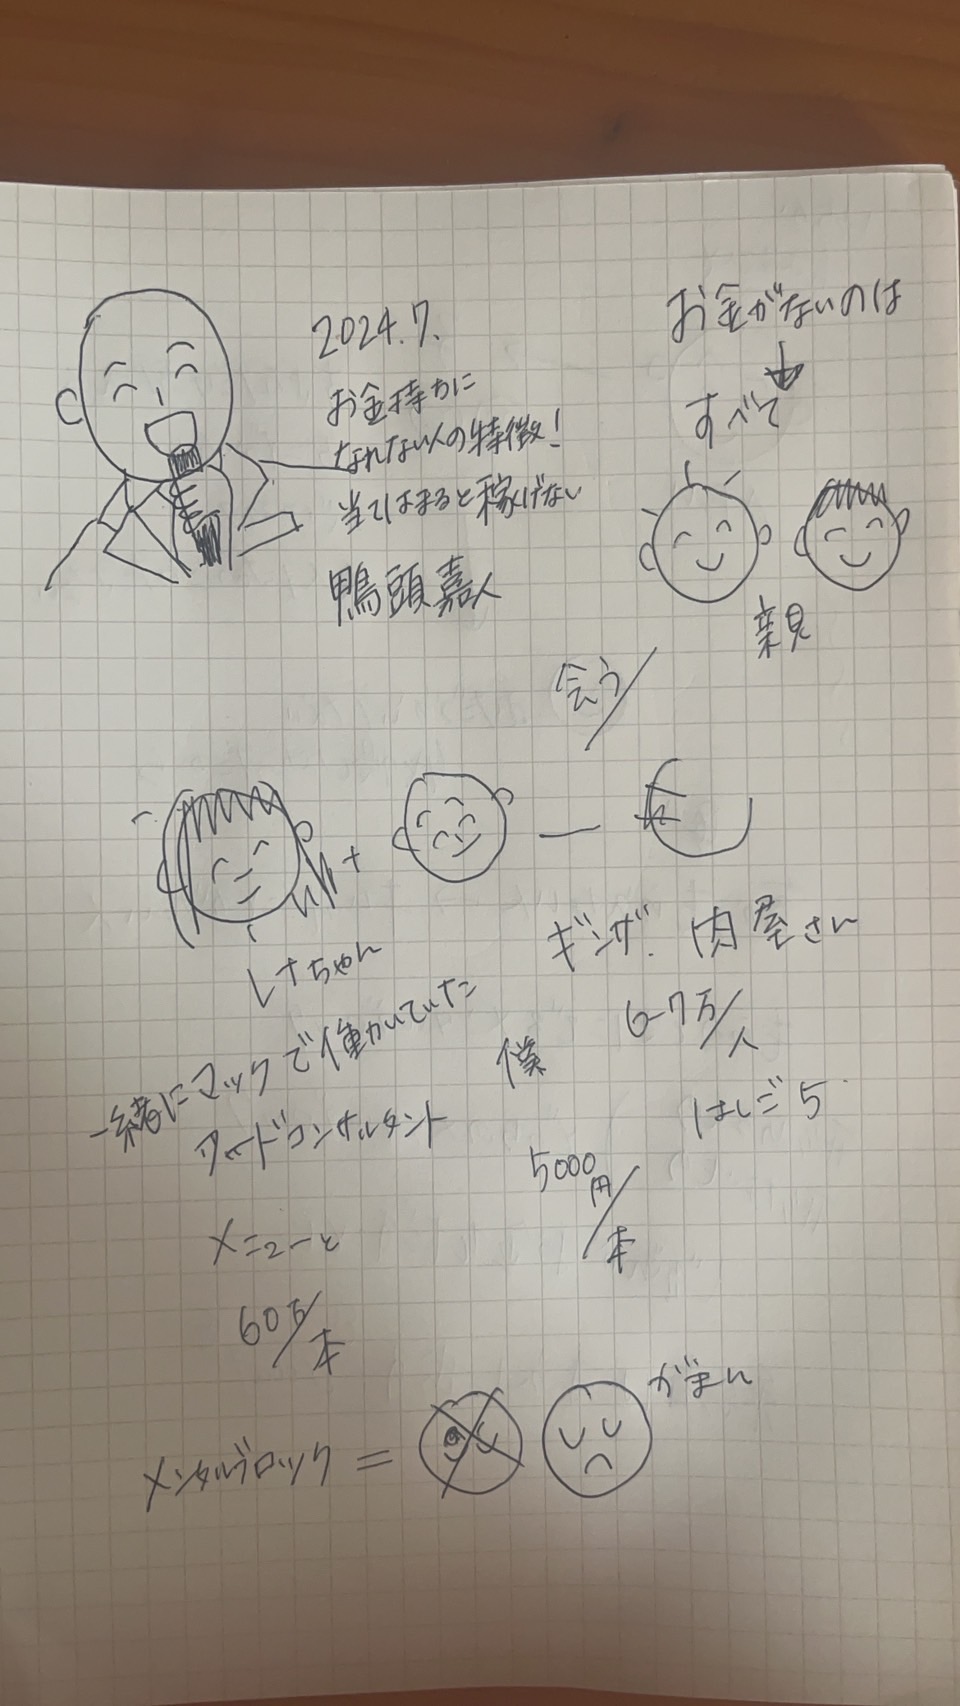 2024.7.
お金持ちに
なれない人の特徴!
当てはまると稼げない
鴨頭嘉人
お金がないのは
すべて
親
会う
+
レナちゃん
一緒にマックで働いていた
フードコンサルタント
メニューと
60万/本
ギンザ. 肉屋さん
6-7万/人
はしご5
僕
5000円/本
メンタルブロック =
がまん